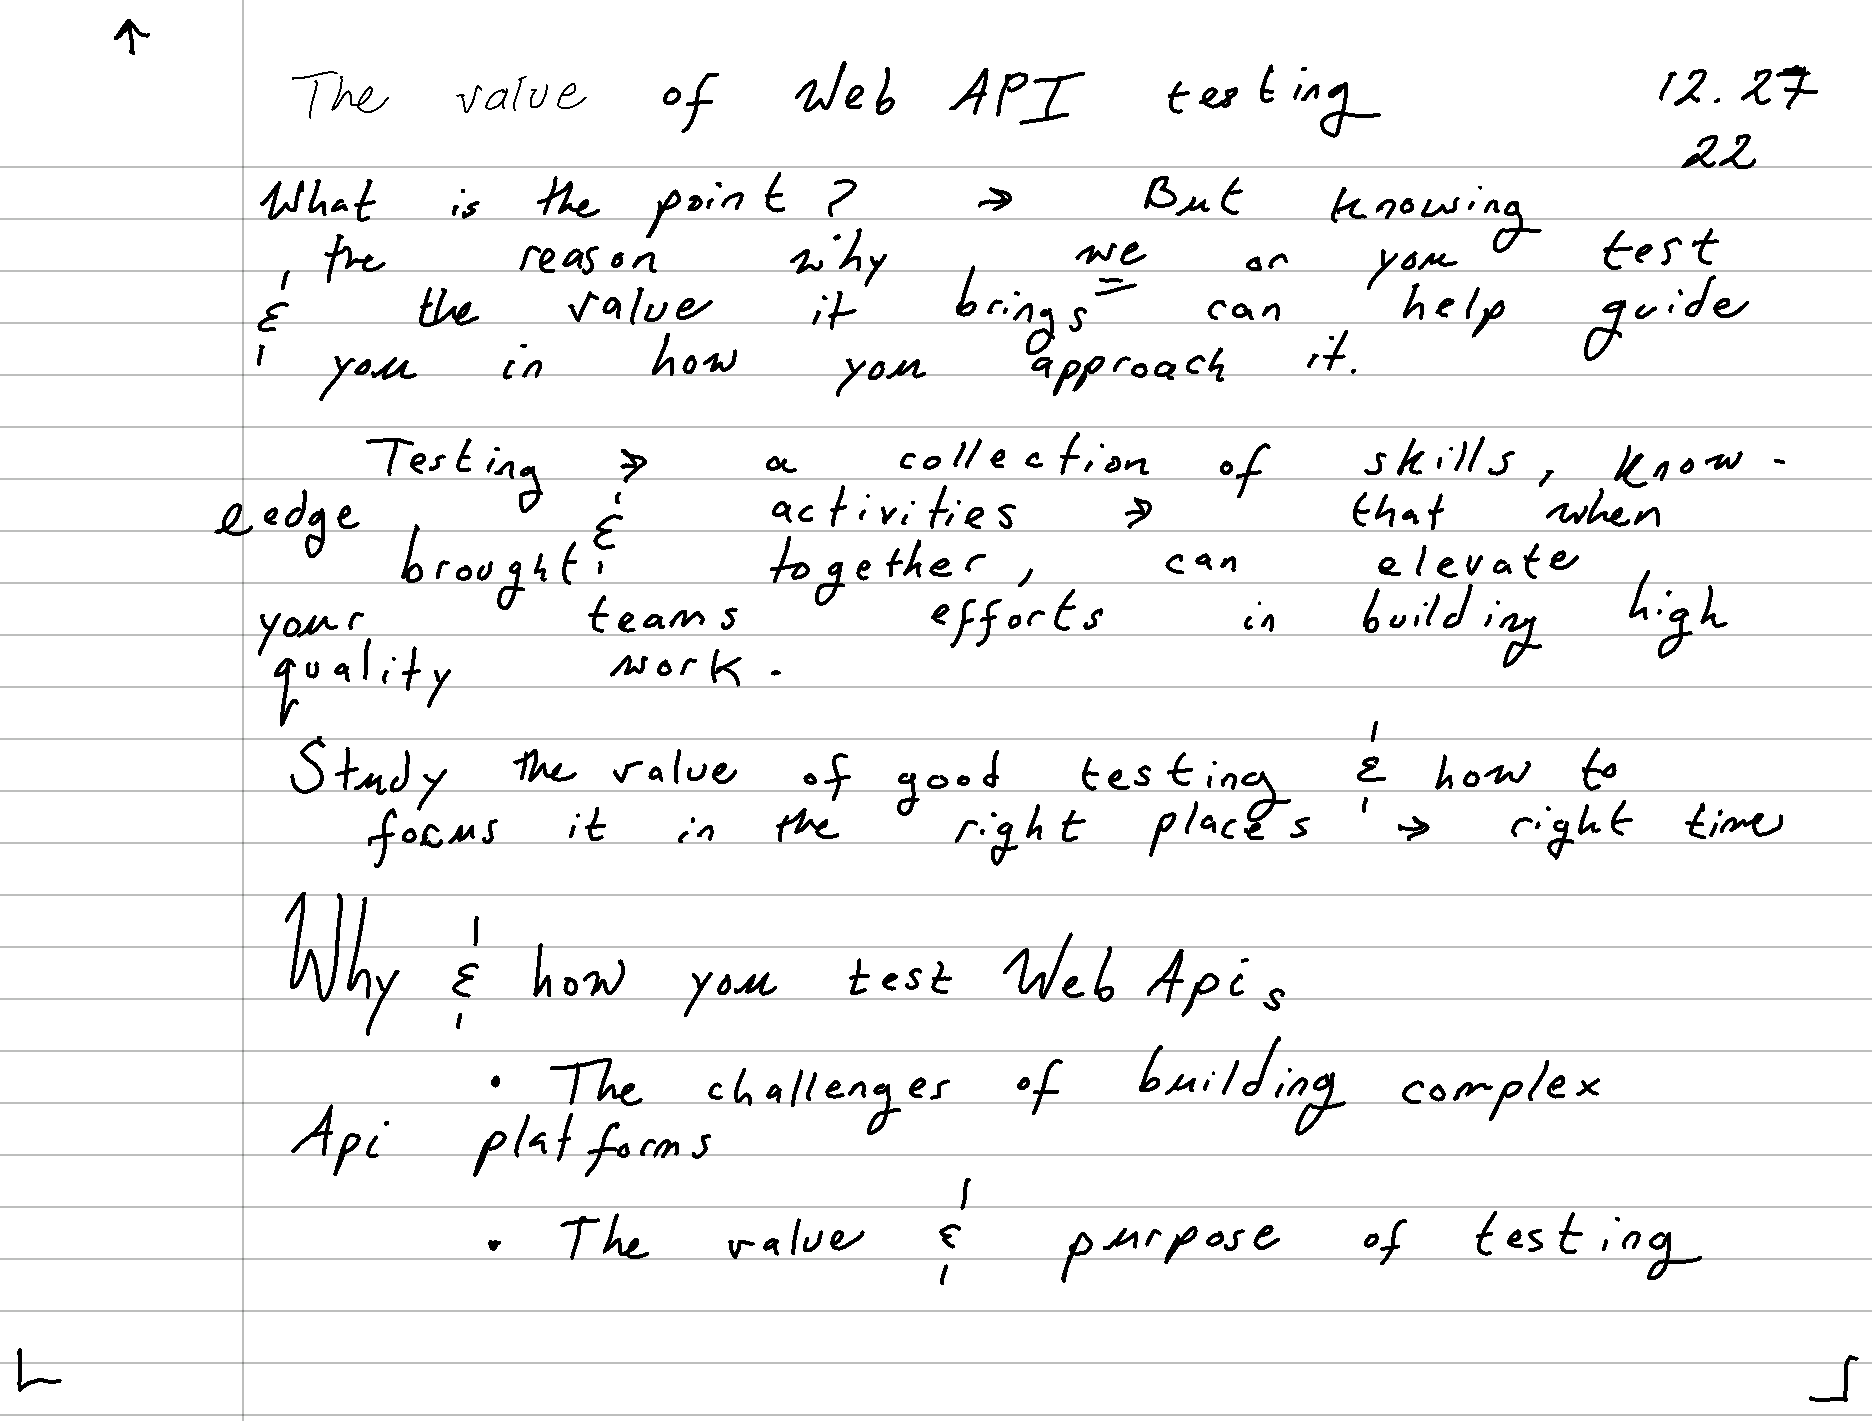 ↑
The value of Web API testing 12.27
22
What is the point? → But knowing
the reason why we or you test
& the value it brings can help guide
you in how you approach it.
Testing → a collection of skills, know-
ledge & activities → that when
brought together, can elevate
your teams efforts in building high
quality work.
Study the value of good testing & how to
focus it in the right places → right time
Why & how you test Web Apis
• The challenges of building complex
Api platforms
• The value & purpose of testing